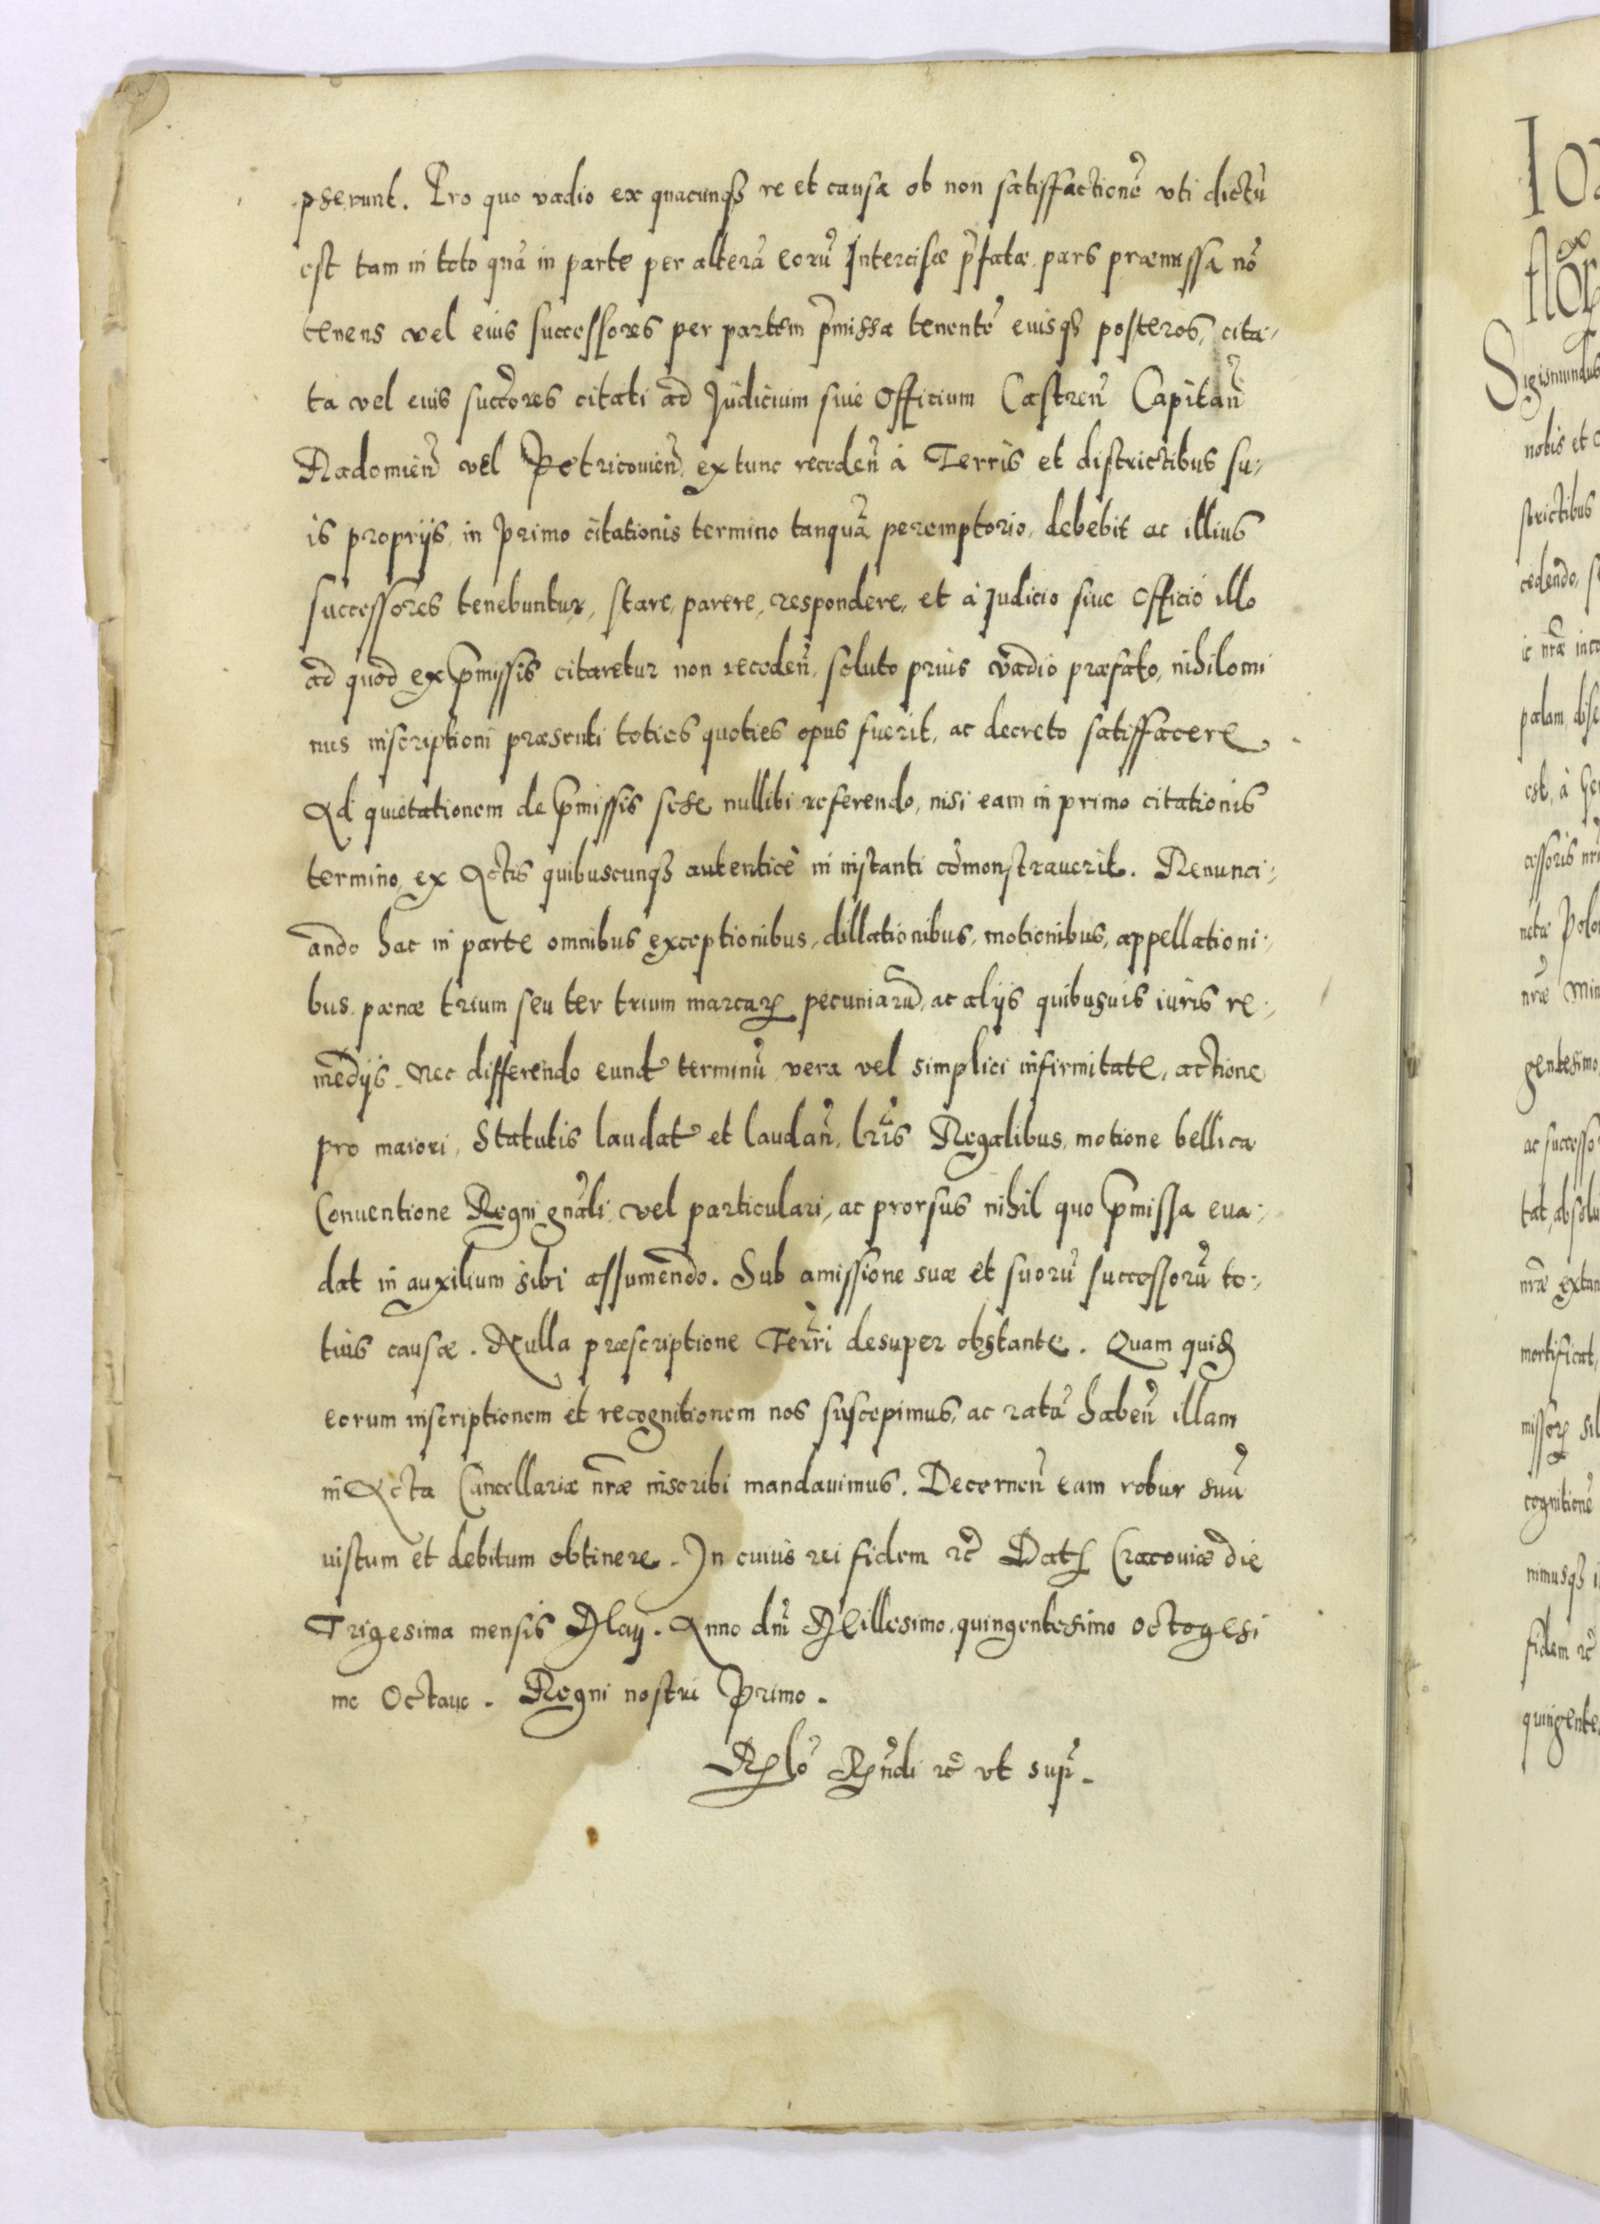 pserunt. Pro quo vadio ex quacunqꝫ re et causa ob non satisfactionē vti dictū
est tam in toto quā in parte per alterā eorū Intercisæ p̄fatæ, pars præmissa nō
tenens vel eius successores per partem p̄missa tenentē eiusqꝫ posteros, cita-
ta vel eius succ̄ores citati ad Judicium siue Officium Castren̄ Capitan̄
Radomien̄ vel Petricouien̄, ex tunc receden̄ à Terris et districtibus su-
is proprijs, in primo citationis termino tanquā peremptorio, debebit ac illius
successores tenebuntur, stare, parere, respondere, et à Judicio siue Officio illo
ad quod ex p̄missis citaretur non receden̄, soluto prius vadio præfato, nihilomi
nus inscriptioni præsenti toties quoties opus fuerit, ac decreto satisfacere
Ad quietationem de p̄missis sese nullibi referendo, nisi eam in primo citationis
termino, ex Actis quibuscunqꝫ autenticè in instanti cōmonstrauerit. Renunci-
ando hac in parte omnibus exceptionibus, dillationibus, motionibus, appellationi-
bus, pænæ trium seu ter trium marcarꝝ pecuniarū, ac alijs quibusuis iuris re-
medijs, Nec differendo eund̄ terminū vera vel simplici infirmitate, actione
pro maiori, Statutis laudat̄ et laudan̄, lr̄is Regalibus, motione bellica
Conuentione Regni gnāli, vel particulari, ac prorsus nihil quo p̄missa eua-
dat in auxilium sibi assumendo. Sub amissione suæ et suorū successorū to-
tius causæ. Nulla præscriptione Terr̄i desuper obstante. Quam quid̄
eorum inscriptionem et recognitionem nos suscepimus, ac ratā haben̄ illam
in Acta Cancellariæ nr̄æ inscribi mandauimus. Decernen̄ eam robur suū
iustum et debitum obtinere. In cuius rei fidem ꝛc̄ Dat̄ Cracouiæ die
Trigesima mensis Maij. Anno dnī Millesimo, quingentesimo octogesi
mo Octauo. Regni nostri Primo.
Rlō Rn̄di ꝛc̄ vt supr̄.
Sigismundus
nobis et
strictibus
cedendo,
palam,
est, à
cessoris
gentesimo,
ac successo
mortificat,
cognitionē
fidem ꝛc̄
quingente